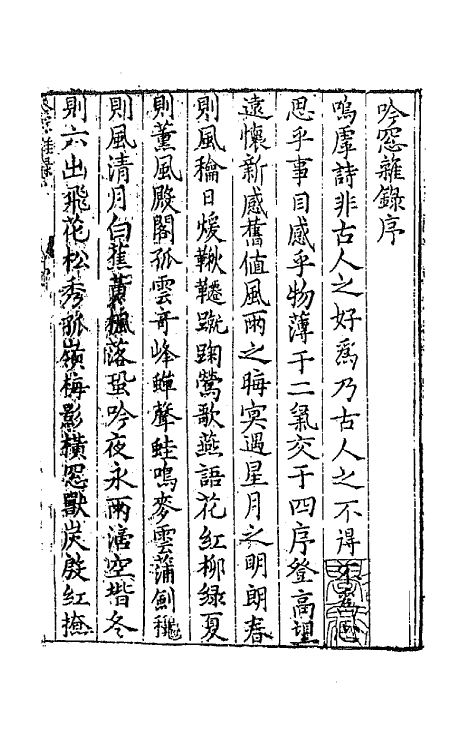 吟窓雜錄序
嗚虖詩非古人之好爲乃古人之不得
思乎事目感乎物薄于二氣交于四序登高
遠懷新感舊值風雨之晦㝠遇星月之明朗春
則風稐日煖鞦韆蹴踘鶯歌燕語花紅柳緑夏
則薰風殿閣孤雲奇峰蟬聲蛙鳴麥雲蒲劍
則風清月白蕉黄楓落蛩吟夜永雨滴空堦冬
則六出飛花松秀孤嶺梅影橫窓獸炭殷紅